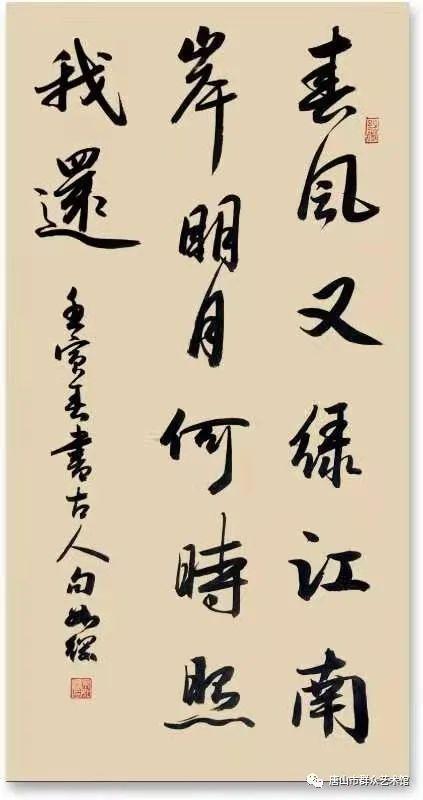 春风又绿江南
岸明月何時照
我還
壬寅春書古人句
唐山市群众艺术馆